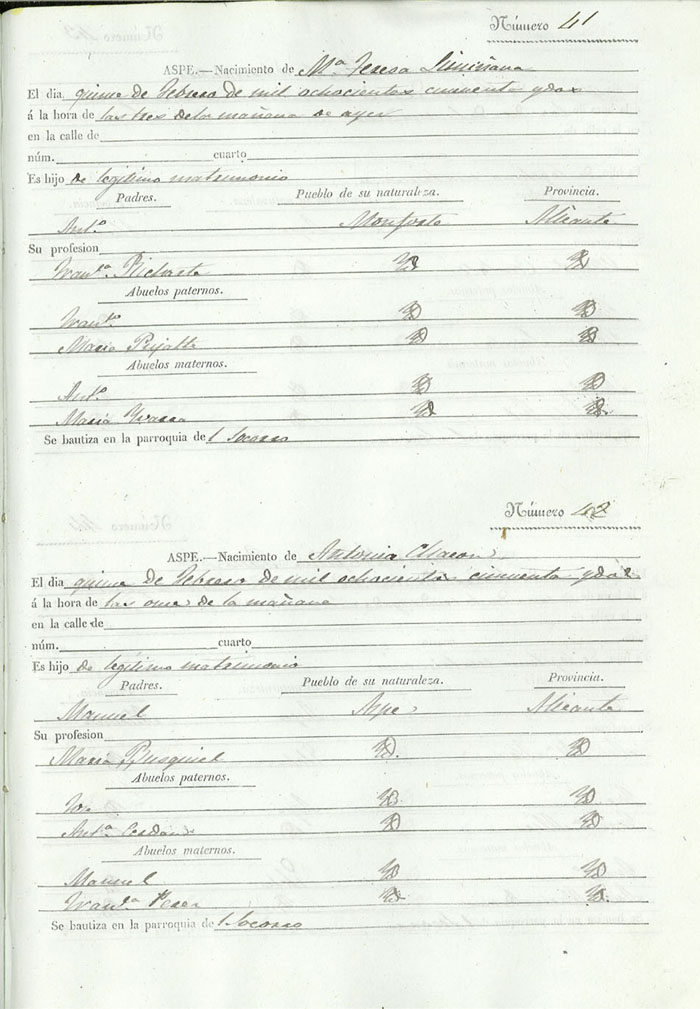 Número 41
ASPE.—Nacimiento de Mª Teresa Limiñana
El dia quince de Febrero de mil ochocientos cincuenta y dos
á la hora de las tres de la mañana de ayer
en la calle de
núm. cuarto
Es hijo de legitimo matrimonio
Padres. Pueblo de su naturaleza. Provincia.
Antº Monforte Alicante
Su profesion
Franᶜª
Abuelos paternos.
Franᶜº
Maria Pujalte
Abuelos maternos.
Antº
Maria
Se bautiza en la parroquia del Socorro
Número 42
ASPE.—Nacimiento de Antonia Chacon
El dia quince de Febrero de mil ochocientos cincuenta y dos
á la hora de las once de la mañana
en la calle de
núm. cuarto
Es hijo de legitimo matrimonio
Padres. Pueblo de su naturaleza. Provincia.
Manuel Aspe Alicante
Su profesion
Maria
Abuelos paternos.
Antª Cerdan
Abuelos maternos.
Manuel
Franᶜª Perez
Se bautiza en la parroquia del Socorro